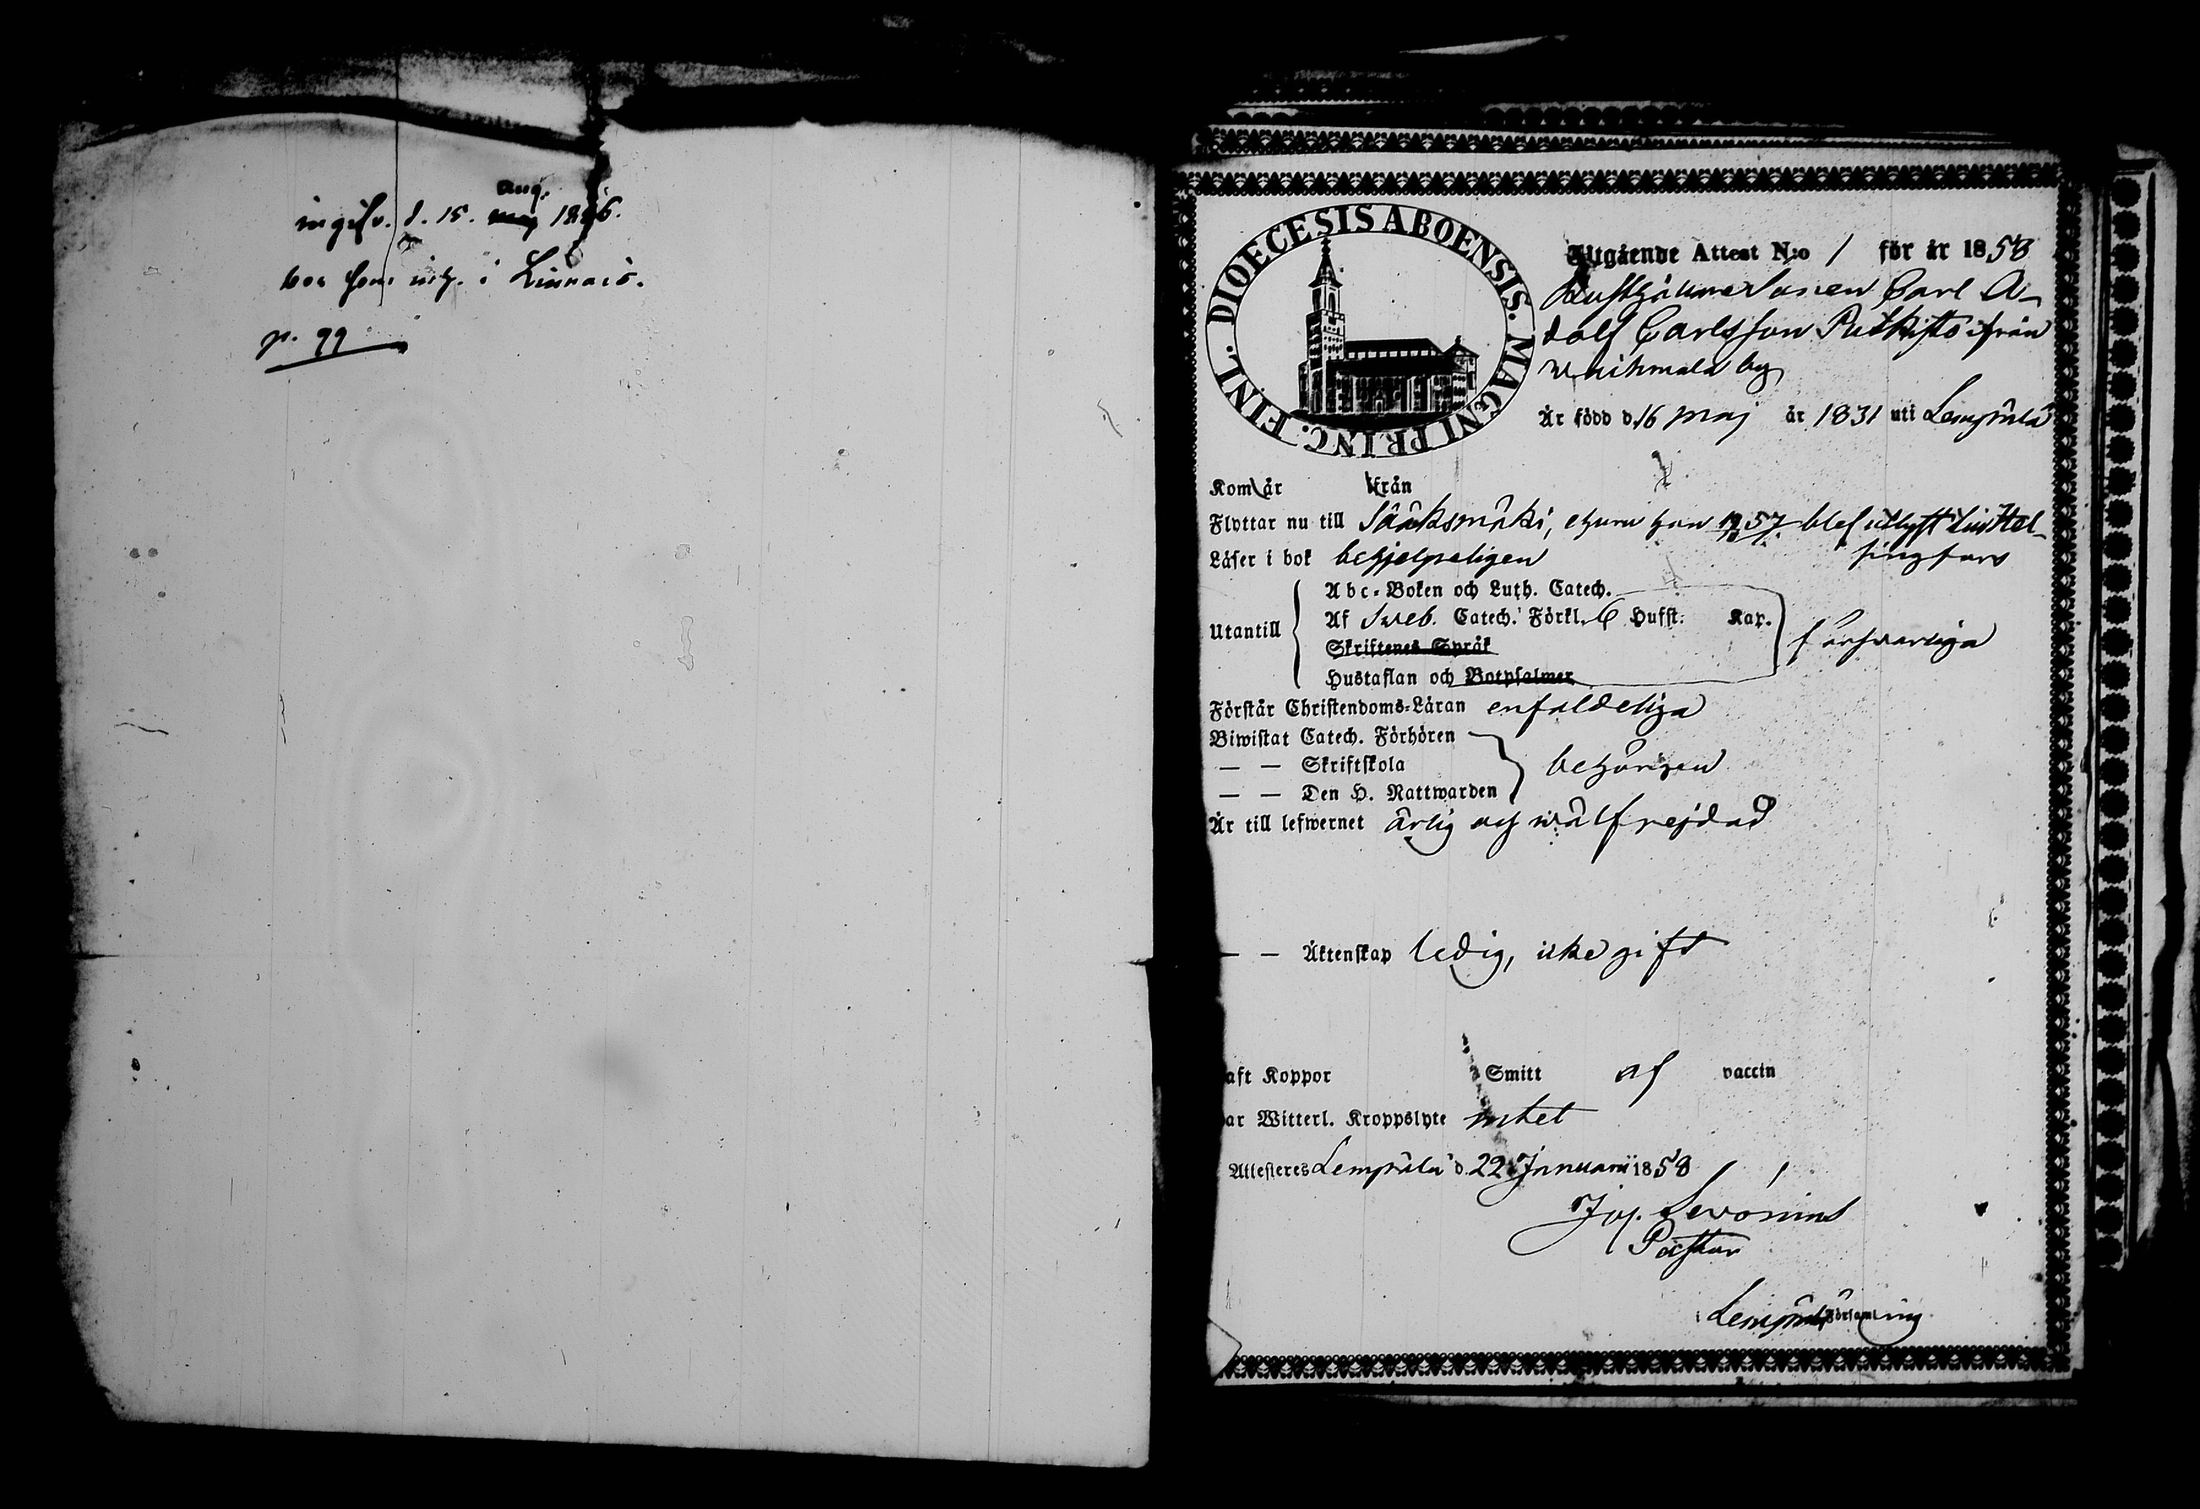 aug.
d. 15. maj 1856.
bor som inh. i
p. 99
DIOECESIS ABOENSIS. MAGNI PRINC. FINL.
Utgående Attest N:o 1 för år 1858
Sonen Carl A-
dolf Carlsson ifrån
by
Är född d. 16 Maj år 1831 uti Lempälä
Kom år från
Flyttar nu till Sääksmäki, ehuru han 18 57 blef utlyst till Hel-
singfors
Läser i bok behjelpeligen
Utantill
Abc-Boken och Luth. Catech.
Af Sveb. Catech. Förkl. 6 Hufst. Kap.
försvarliga
Skriftenes Språk
Hustaflan och Botpsalmer
Förstår Christendoms-Läran enfaldeliga
Biwistat Catech. Förhören
— — Skriftskola
behörigen
— — Den H. Nattwarden
Är till lefwernet ärlig och wälfrejdad
— — Äktenskap ledig, icke gift
aft Koppor Smitt af vaccin
ar Witterl. Kroppslyte intet
Attesteres Lempälä d. 22 Januarii 1858
Jos. Sevonius
Pastor
i Lempälä Församling